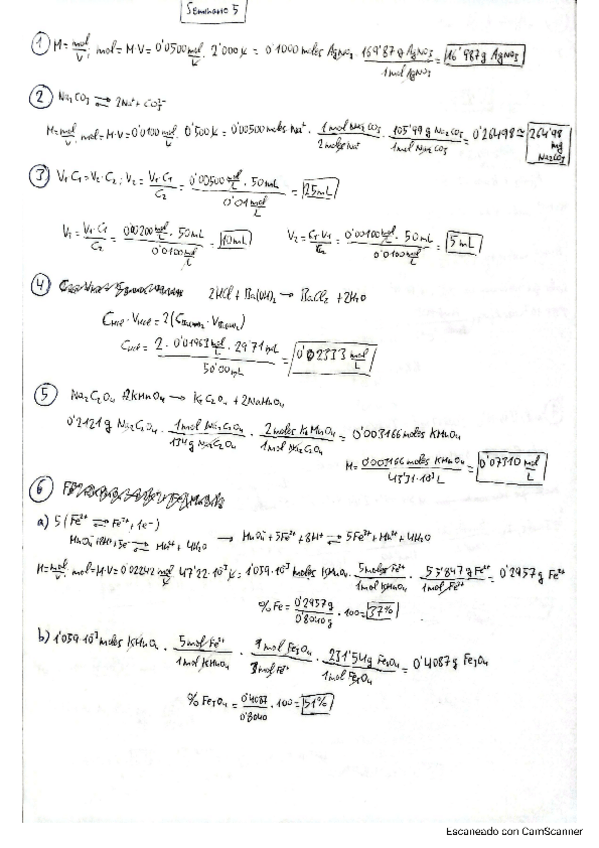 Seminario 5
① M = mol/V; mol = M·V = 0'0500 mol/L · 2'000 L = 0'1000 moles AgNO₃ · 169'87 g AgNO₃ / 1 mol AgNO₃ = 16'987 g AgNO₃
② Na₂CO₃ ⇌ 2Na⁺ + CO₃²⁻
M = mol/V; mol = M·V = 0'0100 mol/L · 0'500 L = 0'00500 moles Na⁺ · 1 mol Na₂CO₃ / 2 moles Na⁺ · 105'99 g Na₂CO₃ / 1 mol Na₂CO₃ = 0'26498 ≅ 264'98 mg Na₂CO₃
③ V₁·C₁ = V₂·C₂; V₂ = V₁·C₁ / C₂ = 0'00500 mol/L · 50 mL / 0'01 mol/L = 25 mL
V₂ = V₁·C₁ / C₂ = 0'00200 mol/L · 50 mL / 0'0100 mol/L = 10 mL V₂ = C₁·V₁ / C₂ = 0'00100 mol/L · 50 mL / 0'0100 mol/L = 5 mL
④ 2HCl + Ba(OH)₂ → BaCl₂ + 2H₂O
C_HCl · V_HCl = 2(C_Ba(OH)₂ · V_Ba(OH)₂)
C_HCl = 2 · 0'01963 mol/L · 29'71 mL / 50'00 mL = 0'02333 mol/L
⑤ Na₂C₂O₄ + 2KMnO₄ → K₂C₂O₄ + 2NaMnO₄
0'2121 g Na₂C₂O₄ · 1 mol Na₂C₂O₄ / 134 g Na₂C₂O₄ · 2 moles KMnO₄ / 1 mol Na₂C₂O₄ = 0'003166 moles KMnO₄
M = 0'003166 moles KMnO₄ / 43'31·10⁻³ L = 0'07310 mol/L
⑥
a) 5 (Fe²⁺ ⇌ Fe³⁺ + 1e⁻)
MnO₄⁻ + 8H⁺ + 5e⁻ ⇌ Mn²⁺ + 4H₂O → MnO₄⁻ + 5Fe²⁺ + 8H⁺ ⇌ 5Fe³⁺ + Mn²⁺ + 4H₂O
M = mol/V; mol = M·V = 0'02242 mol/L · 47'22·10⁻³ L = 1'059·10⁻³ moles KMnO₄ · 5 moles Fe²⁺ / 1 mol KMnO₄ · 55'847 g Fe²⁺ / 1 mol Fe²⁺ = 0'2957 g Fe²⁺
% Fe = 0'2957 g / 0'8040 g · 100 = 37%
b) 1'059·10⁻³ moles KMnO₄ · 5 mol Fe²⁺ / 1 mol KMnO₄ · 1 mol Fe₃O₄ / 3 mol Fe²⁺ · 231'54 g Fe₃O₄ / 1 mol Fe₃O₄ = 0'4087 g Fe₃O₄
% Fe₃O₄ = 0'4087 / 0'8040 · 100 = 51%
Escaneado con CamScanner